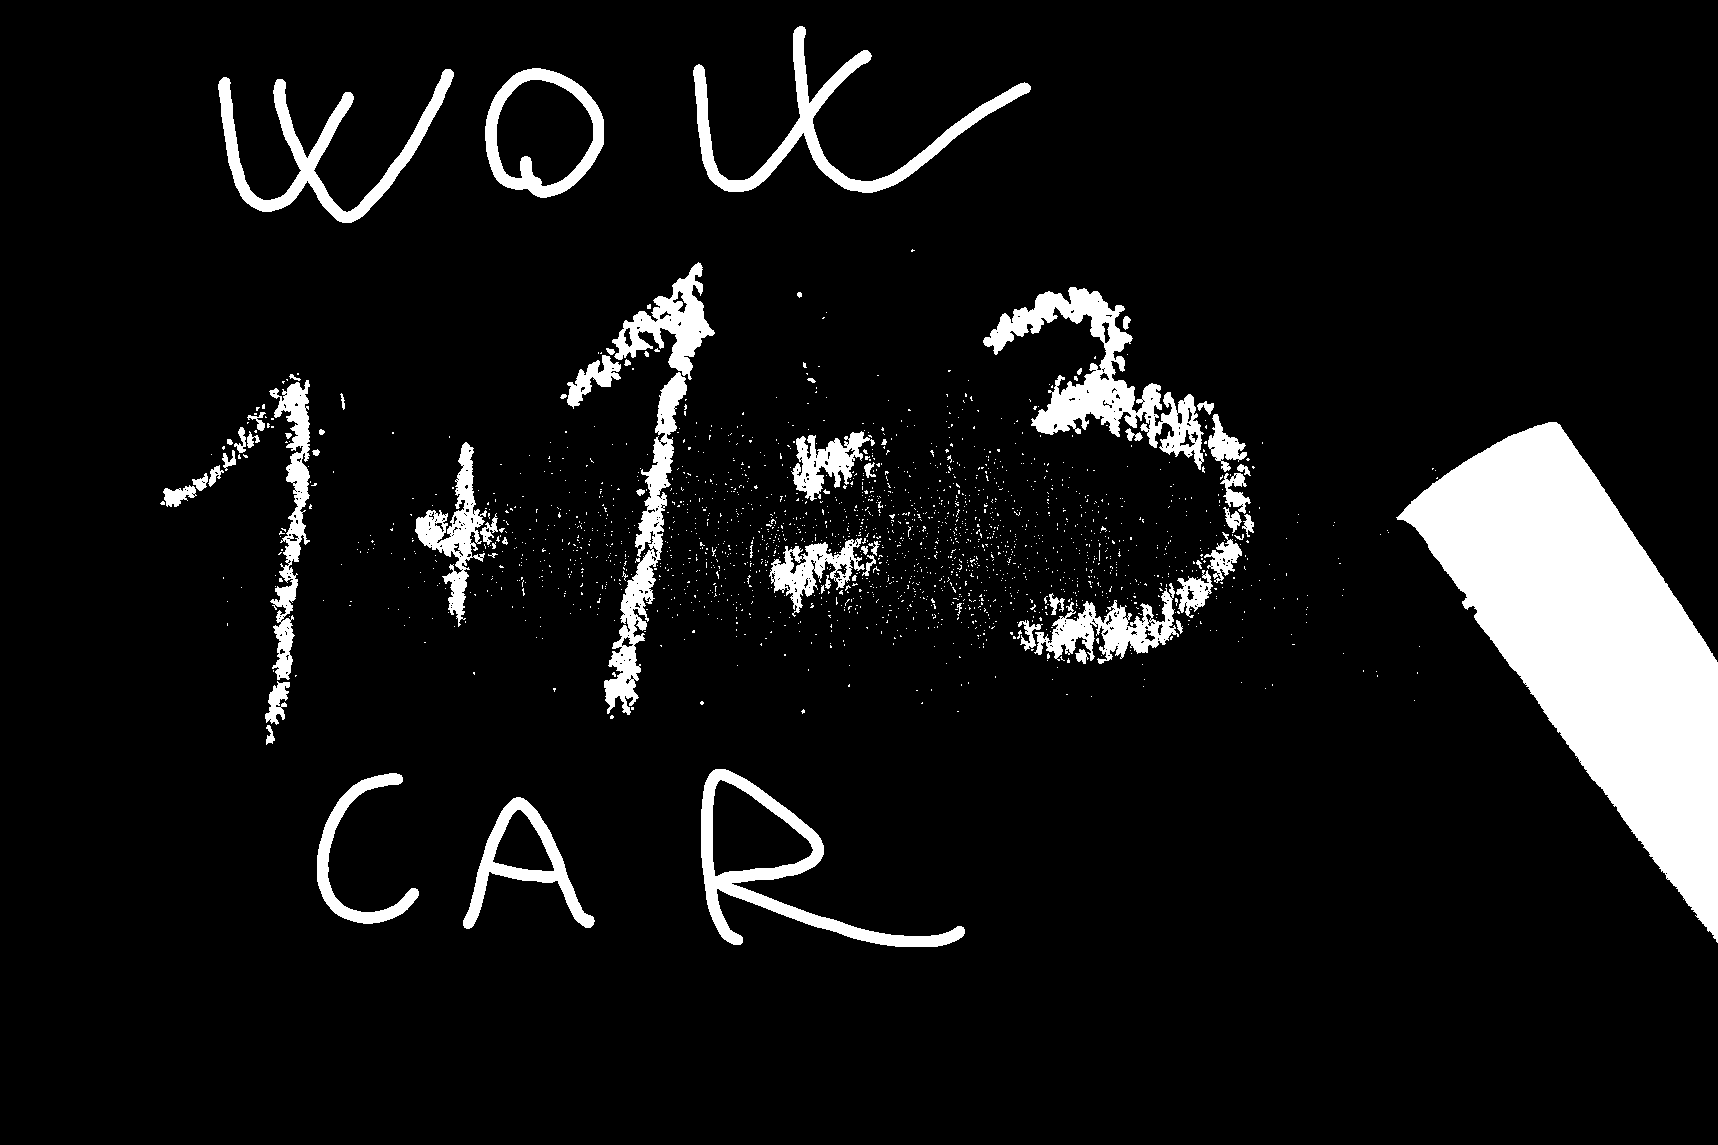 WOW
1+1=3
CAR